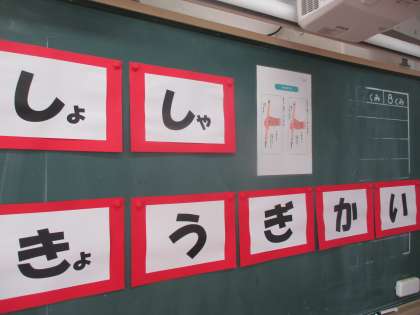 しょしゃ
きょうぎかい
くみ 8くみ